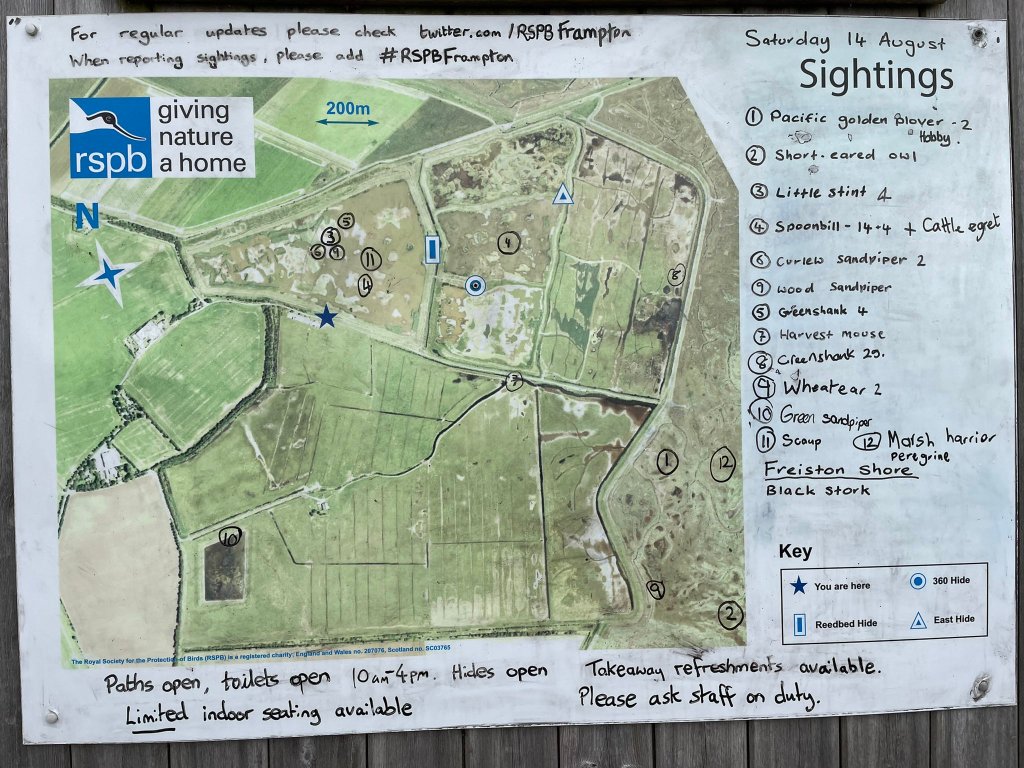 For regular updates please check twitter.com/RSPBFrampton
When reporting sightings, please add #RSPBFrampton
Saturday 14 August
Sightings
rspb
giving
nature
a home
200m
N
① Pacific golden Plover - 2
Hobby.
② Short-eared owl
③ Little stint 4
④ Spoonbill - 14+4 + Cattle egret
⑥ Curlew sandpiper 2
⑨ Wood Sandpiper
⑤ Greenshank 4
⑦ Harvest mouse
⑧ Greenshank 29.
⑨ Wheatear 2
⑩ Green sandpiper
⑪ Scaup ⑫ Marsh harrior
peregrine
Freiston Shore
Black Stork
⑤
③
⑥ ⑨
⑪
④
④
⑧
⑦
①
⑫
⑩
⑨
②
Key
You are here
360 Hide
Reedbed Hide
East Hide
The Royal Society for the Protection of Birds (RSPB) is a registered charity: England and Wales no. 207076, Scotland no. SC03765
Paths open, toilets open 10am-4pm. Hides open
Limited indoor seating available
Takeaway refreshments available.
Please ask staff on duty.